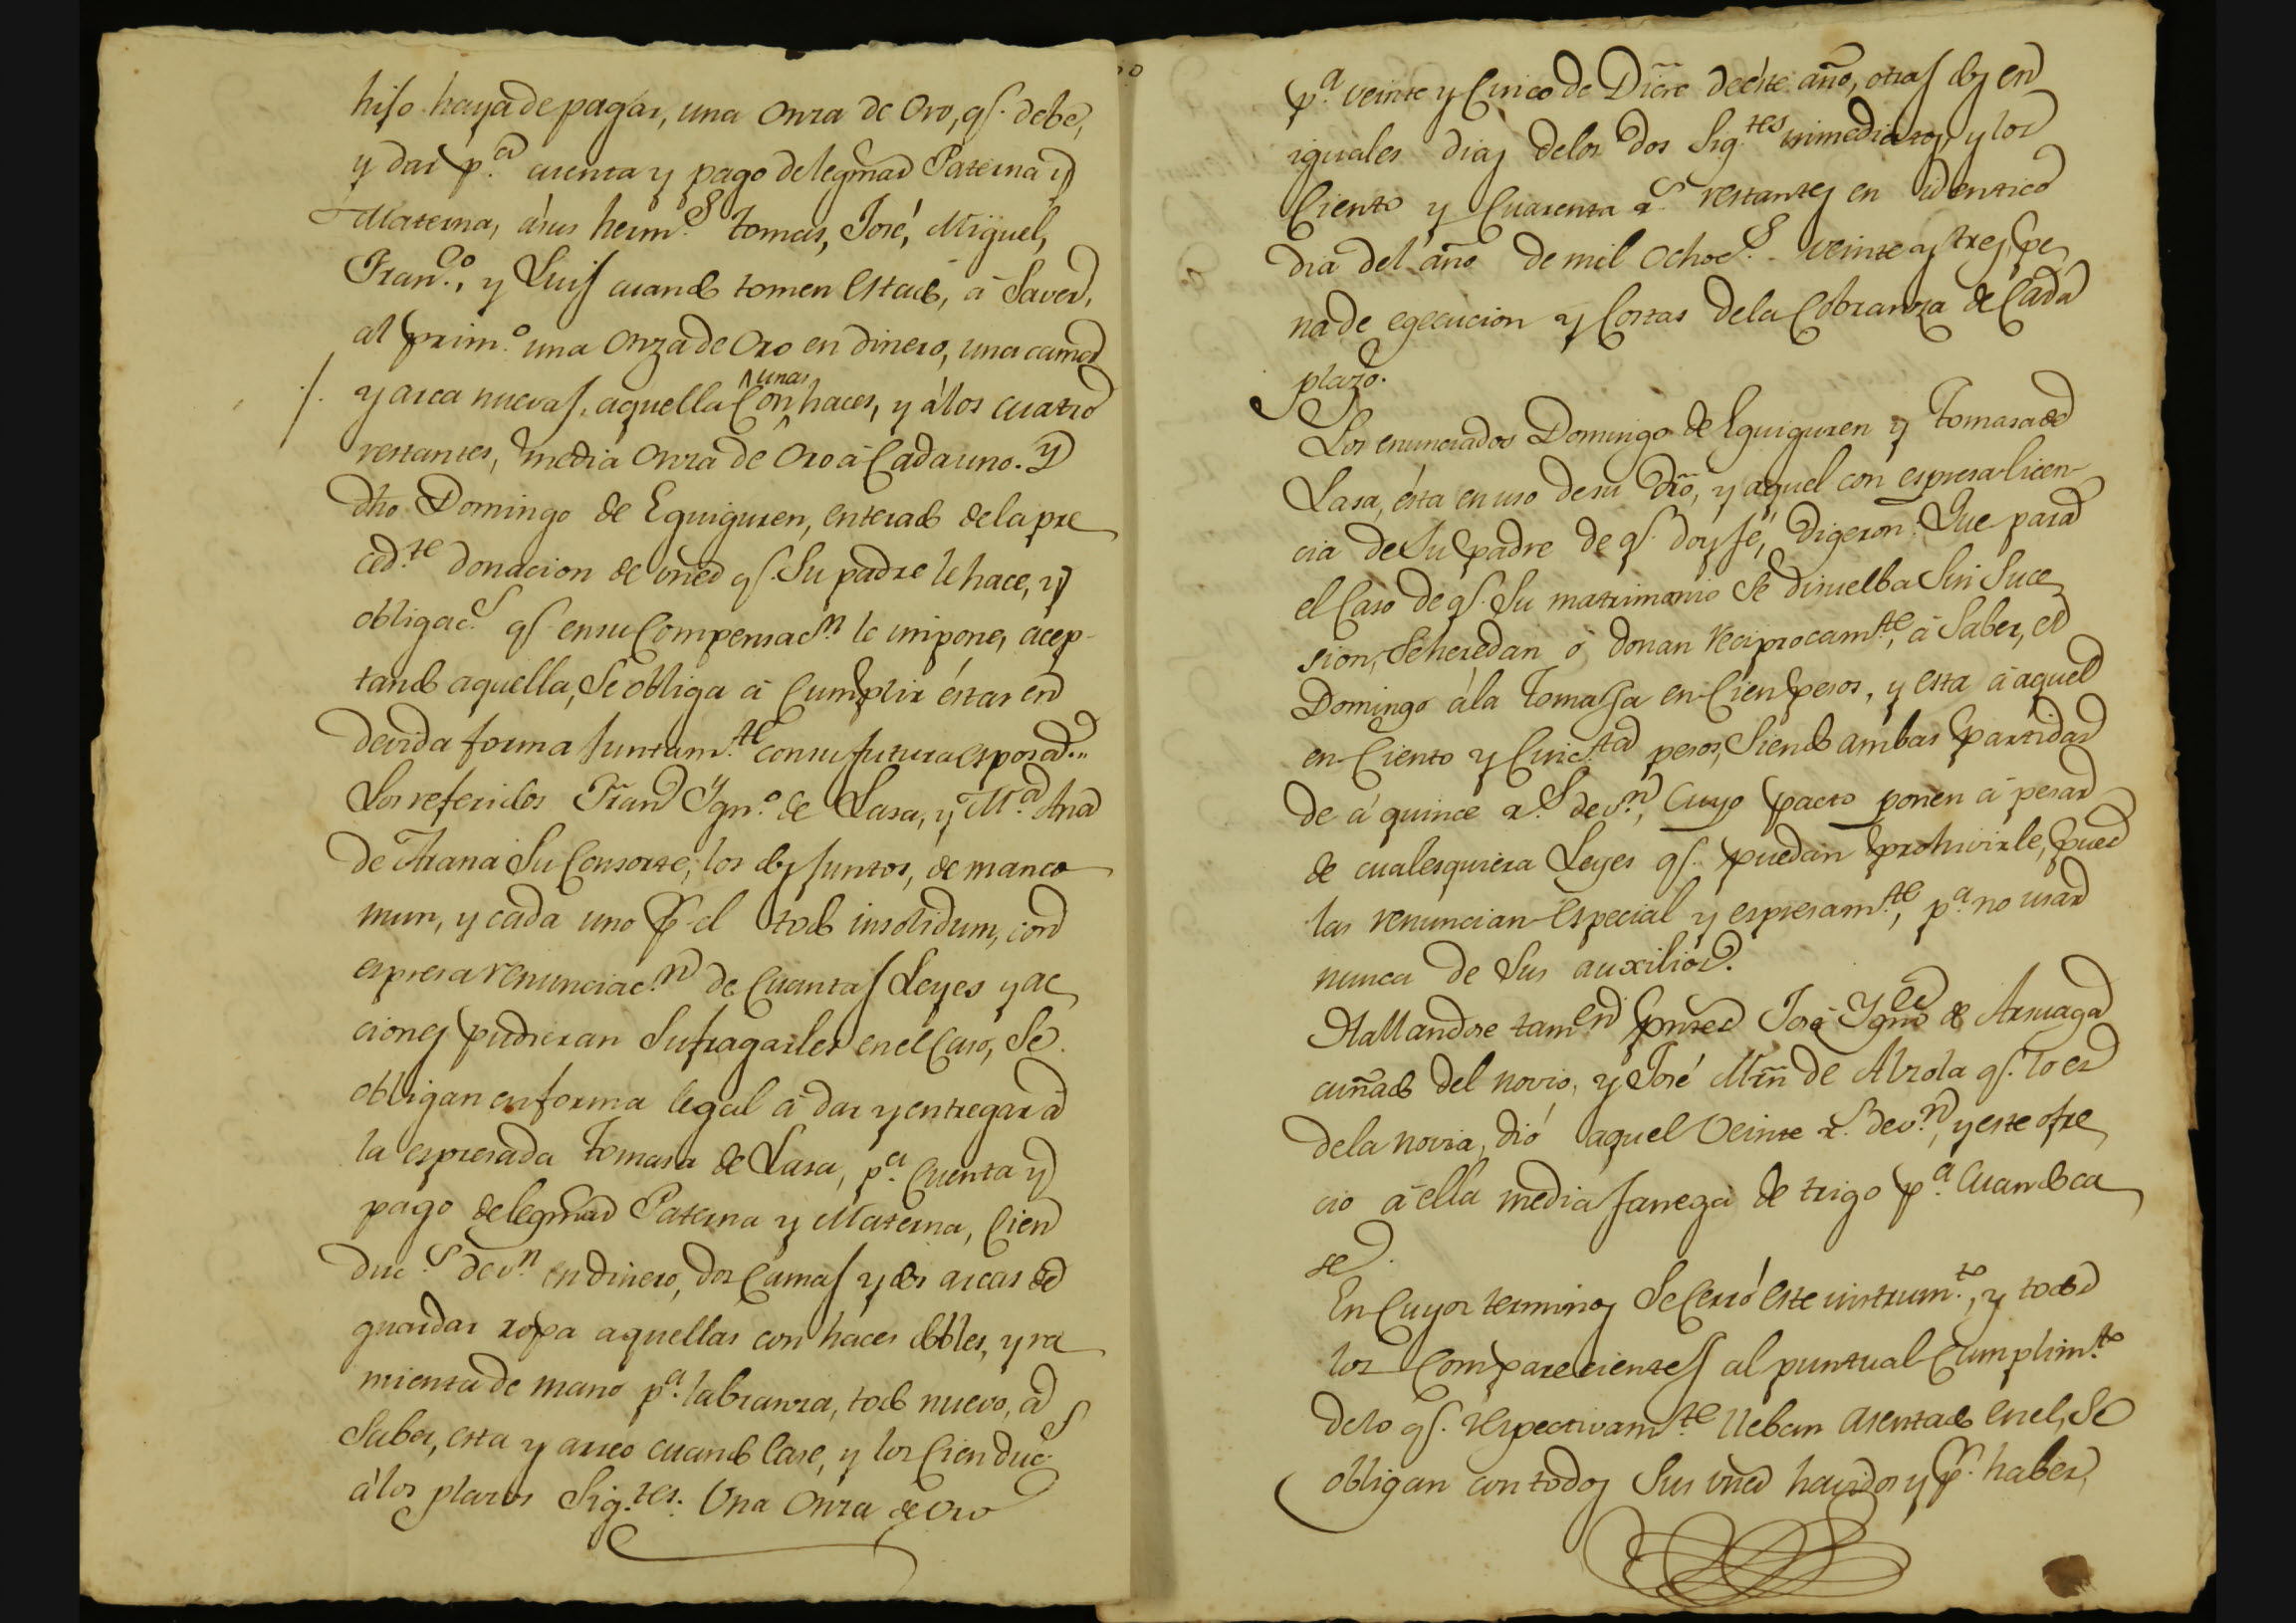 hiso haya de pagar, una Onza de Oro, qᵉ. debe,
y dar pᵃ. cuenta y pago de legmas Paterna y
Materna, á sus hermˢ. Tomas, José, Miguel,
Franᶜᵒ., y Luis cuando tomen estado, á Saver,
al primº. una Onza de Oro en dinero, una cama
y arca nuevas, aquella Con unas haces, y á los cuatro
restantes, media Onza de Oro á Cada uno. Y
dho Domingo de Eguiguren, enterado de la pre
cedᵗᵉ donacion de vnes qᵉ. Su padre le hace, y
obligacˢ. qᵉ en su Compensacⁿ. le impone, acep-
tando aquella, Se obliga á Cumplir éstas en
devida forma Juntamᵗᵉ con su futura esposa..
Los referidos Fran Ygnº. de Lasa, y Mᵃ. Ana
de Arana Su Consorte, los dos Juntos, de manco
mun, y cada uno pr el todo insolidum, con
espresa renunciacⁿ. de Cuantas Leyes y ac
ciones pudieran Sufragarles en el Caso, Se
obligan en forma legal á dar y entregar á
la espresada Tomasa de Lasa, pᵃ. Cuenta y
pago de legmas Paterna y Materna, Cien
ducˢ. de vⁿ. en dinero, dos Camas y dos arcas de
guardar ropa aquellas con haces dobles, y ra
mienta de mano pᵃ. labranza, todo nuevo, á
Saber, esta y arreo cuando Case, y los Cien ducˢ.
á los plazos Sigᵗᵉˢ. Una Onza de Oro
pᵃ. veinte y Cinco de Dicre de este año, otras dos en
iguales dias de los dos Sigᵗᵉˢ inmediatos, y los
Ciento y Cuarenta rˢ. restantes en identico
dia del año de mil Ochocˢ. veinte y tres, pe
na de egecucion y Costas de la Cobranza de Cada
plazo.
Los enunciados Domingo de Eguiguren y Tomasa de
Lasa, ésta en uso de su dro, y aquel con espresa licen
cia de Su padre de qᵉ. doy fé, Digeron: Que para
el Caso de qᵉ. Su matrimonio Se disuelba Sin Suce
sion, Se heredan ó donan reciprocamᵗᵉ, á Saber, el
Domingo á la Tomasa en Cien pesos, y esta á aquel
en Ciento y Cincᵗᵃ pesos, Siendo ambas partidas
de á quince rˢ. de vⁿ, Cuyo pacto ponen á pesar
de cualesquiera Leyes qᵉ. puedan prohivirle, pues
las renuncian especial y espresamᵗᵉ, pᵃ. no usar
nunca de Sus auxilios.
Hallandose tamen pntes José Ygnº de Arsuaga
cuñado del novio, y José Mrn de Alzola qᵉ. lo es
de la novia, dió aquel Veinte rˢ. de vⁿ, y este ofre
cio á ella media fanega de trigo pᵃ. Cuando ca
se.
En Cuyos terminos Se Cerró este instrumᵗᵒ., y todos
los Comparecientes al puntual Cumplimᵗᵒ
de lo qᵉ. respectivamᵗᵉ lleban asentado en el, Se
obligan con todos Sus vnes havidos y pʳ. haber,